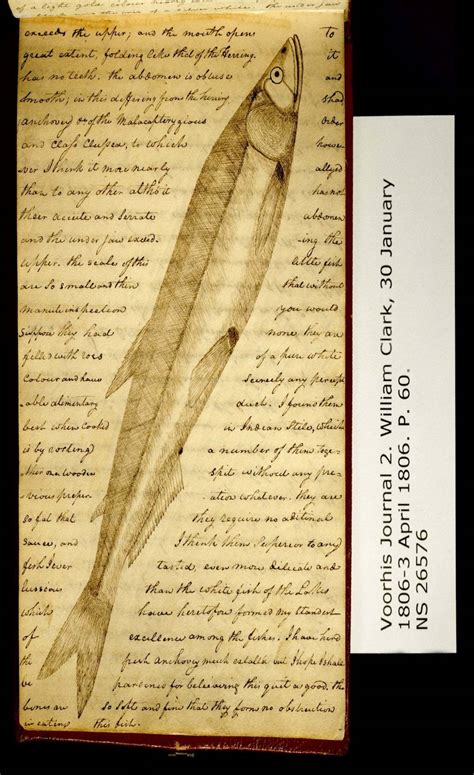 of a light gold colour
exceeds the upper; and the mouth opens To
great extent, folding like that of the Herring. it
has no teeth. the abdomen is obtuse and
smooth; in this differing from the herring Shad
anchovey &c of the Malacapterygious order
and Class Clupea, to which howe
ver I think it more nearly allyed
than to any other altho it has not
their accute and Serrate abdomen
and the under jaw exceed ing the
upper. the scale of this little fish
are so small and thin that without
manute inspection you would
suppose they had none. they are
filled with roes of a pure white
Colour and have Scercely any percept
able alimentary duct. I found them
best when cooked in Indian Stile, which
is by rosting a number of them toge
ther on a wooden spit without any pre
vious preper ation whatever. they are
so fat that they require no aditional
sauce, and I think them Superior to any
fish I ever tasted, even more dilicate and
lussious than the white fish of the Lakes
which have heretofore formed my Standert
of excellence among the fishes. I have herd
the fresh anchovey much extolled but I hope I shall
be pardoned for beleiveing this quit as good. the
bones are so soft and fine that they form no obstruction
in eating this fish.
Voorhis Journal 2. William Clark, 30 January
1806-3 April 1806. P. 60.
NS 26576